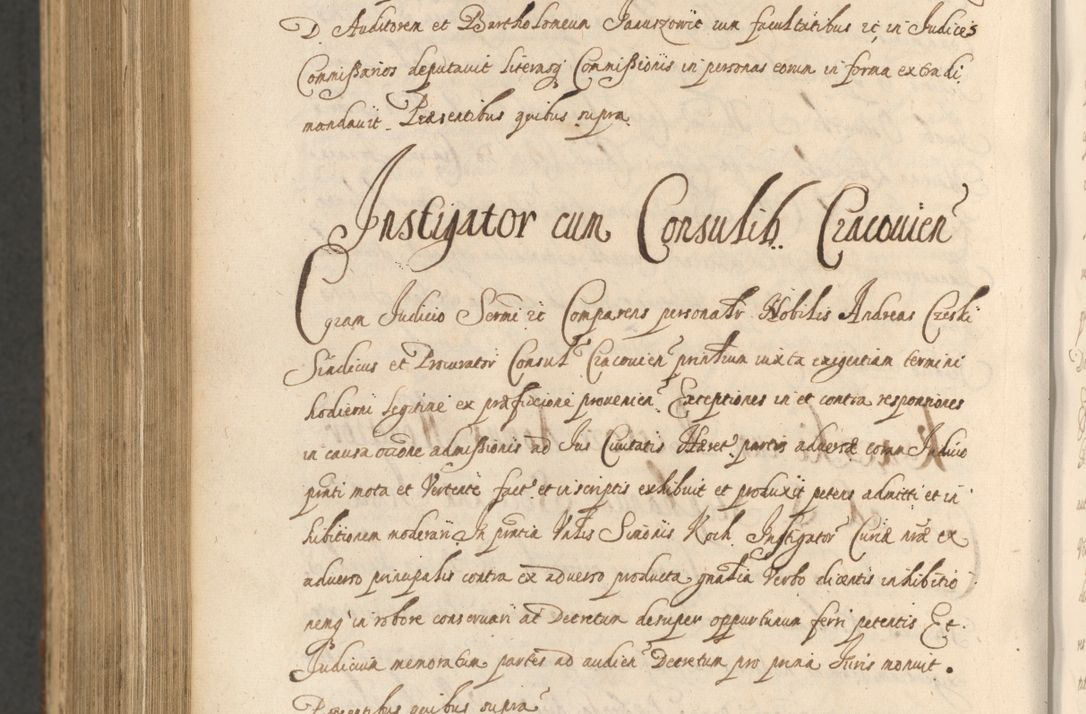 D. Auditorem et Bartholomeum Januszowic cum facultatibus etc in Judices
Commissarios deputavit literasq Commissionis in personas eorum in forma extradi
mandavit. Praesentibus quibus supra
Instigator cum Consulib. Cracovien
Coram Judicio Sermi etc Comparens personalr Nobilis Andreas Czeski
Sindicus et Procurator Consul Cracovien printium iuxta exigentiam termini
hodierni legitime ex praefixione provenien Exceptiones in et contra responsiones
in causa occone admissionis ad Jus Civitatis Haeret. partis adversae coram Judicio
pnti mota et Vertente fact et in scriptis exhibuit et produxit petens admitti et in
hibitionem moderari In pntia Vnlis Simonis Koch Instigator Curiae nrae ex
adverso principalis contra ex adverso producta gnalia Verbo dicentis inhibitio
nemq in robore conservari at Decretum desuper oppurtunum ferri petentis Et
Judicium memoratum partes ad audien Decretum pro prima Juris monuit.
Praesentibus quibus supra